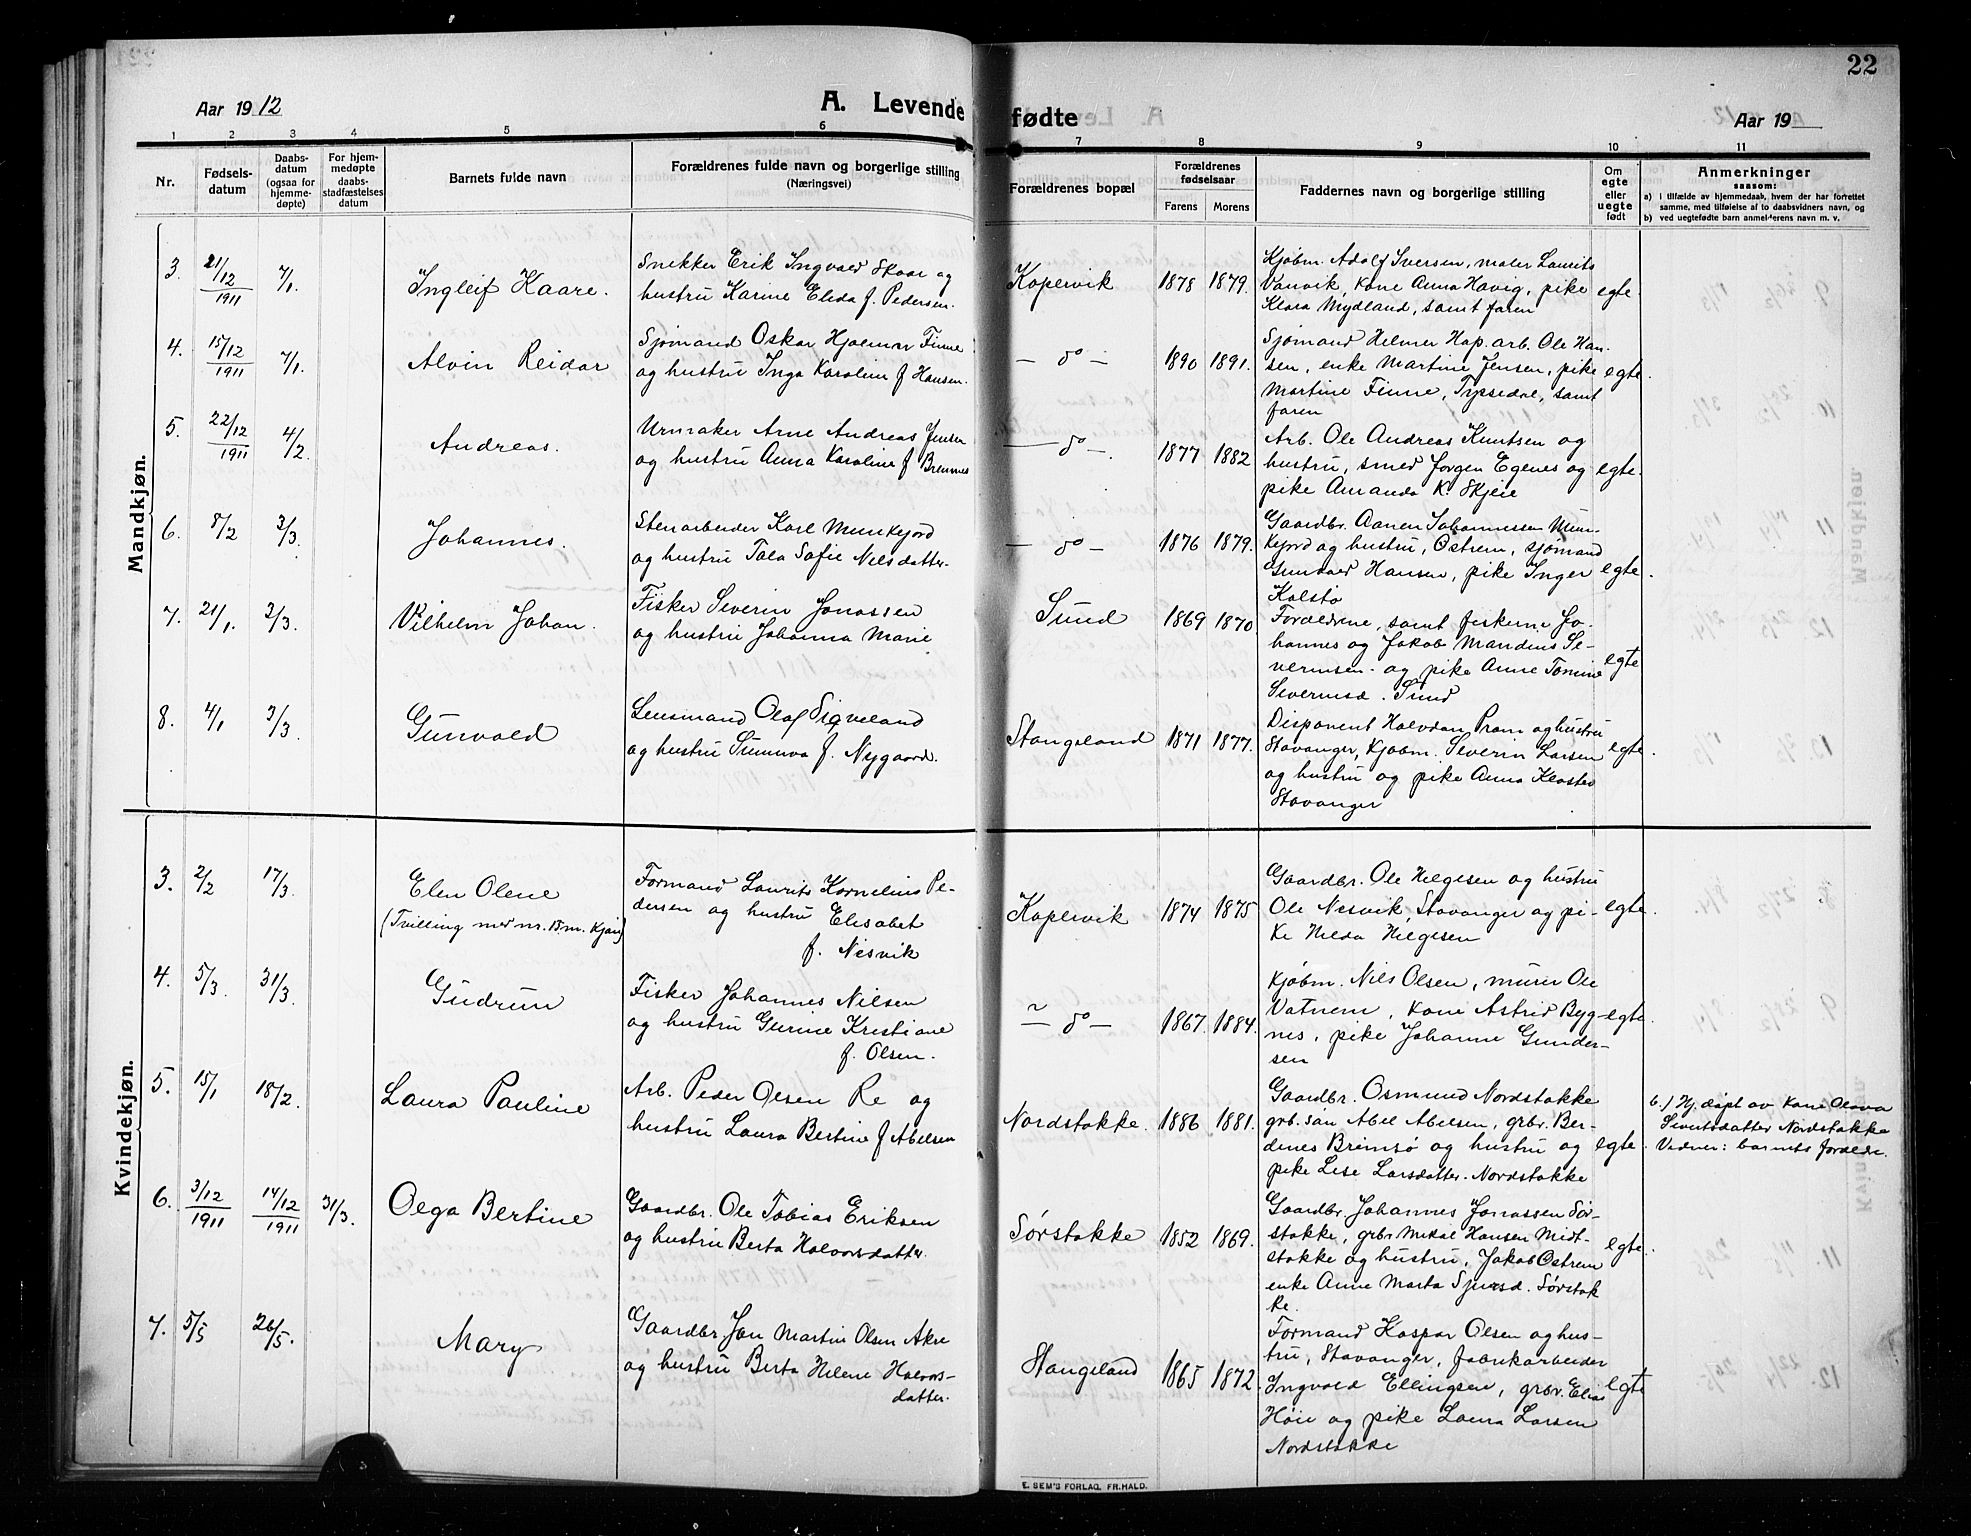 22
Aar 1912
A. Levende
fødte
Aar 19
1 2 3 4 5 6 7 8 9 10 11
Nr.
Fødsels-
datum
Daabs-
datum
(ogsaa for
hjemme-
døpte)
For hjem-
medøpte
daabs-
stadfæstelses
datum
Barnets fulde navn
Forældrenes fulde navn og borgerlige stilling
(Næringsvei)
Forældrenes bopæl
Forældrenes
fødselsaar
Farens Morens
Faddernes navn og borgerlige stilling
Om
egte
eller
uegte
født
Anmerkninger
saasom:
a) i tilfælde av hjemmedaab, hvem der har forrettet
samme, med tilføielse af to daabsvidners navn, og
b) ved uegtefødte barn anmelderens navn m. v.
Mandkjøn.
3. 21/12 1911 7/1. Ingleif Kaare.
Snekker Erik Ingvald Skaar og
hustru Karine Elida f. Pedersen.
Kopervik 1878 1879.
Kjøbm. Adolf Iversen, maler Laurits
Vanvik, kone Anna Havig, pike
Klara Mydland, samt faren
egte.
4. 15/12 1911 7/1. Alvin Reidar
Sjømand Oskar Hjalmar Finne
og hustru Inga Karoline f Hansen.
— do — 1890 1891.
Sjømand Helmer Hop. arb. Ole Han-
sen, enke Martine Jensen, pike
Martine Finne, Tyssedal, samt
faren
egte.
5. 22/12 1911 4/2. Andreas.
Urmaker Arne Andreas Jensen
og hustru Anna Karoline f Bremnes
— do —. 1877 1882
Arb. Ole Andreas Knutsen og
hustru, smed Jørgen Egenes og
pike Amanda K. Skjeie
egte.
6. 8/2 3/3. Johannes.
Stenarbeider Karl Munkejord
og hustru Tala Sofie Nilsdatter.
— do — 1876 1879.
Gaardbr. Aanen Johannessen Mun-
kejord og hustru, Østrem, sjømand
Gunvald Hansen, pike Inger
Kolstø
egte.
7. 21/1. 3/3. Vilhelm Johan.
Fisker Severin Jonassen
og hustru Johanna Marie
Sund 1869 1870.
Forældrene, samt fiskerne Jo-
hannes og Jakob Mandius Se-
verinsen - og pike Anne Tomine
Severinsd. Sund
egte
8. 4/1 3/3. Gunvald
Lensmand Olaf Sigveland
og hustru Sunnva f. Nygaard.
Stangeland 1871 1877.
Disponent Halvdan Pram og hustru
Stavanger, Kjøbm. Severin Larsen
og hustru og pike Anna Kloster
Stavanger
egte.
Kvindekjøn.
3. 2/2 17/3. Elen Olene
(Tvilling med nr. 15 m. Kjøn)
Formand Laurits Kornelius Pe-
dersen og hustru Elisabet
f. Nesvik
Kopervik 1874 1875
Gaardbr. Ole Helgesen og hustru
Ole Nesvik, Stavanger og pi-
ke Hilda Helgesen
egte.
4. 5/3. 31/3. Gudrun
Fisker Johannes Nilsen
og hustru Gurine Kristiane
f. Olsen.
— do — 1867. 1884.
Kjøbm. Nils Olsen, murer Ole
Vatnem, kone Astrid Byg-
nes, pike Johanne Gunder-
sen
egte.
5. 15/1 18/2. Laura Pauline
Arb. Peder Olsen Re og
hustru Laura Bertine f Abelsen
Nordstokke. 1886 1881.
Gaardbr. Osmund Nordstokke
grb. søn Abel Abelsen, grbr. Ber-
denes Brimsø og hustru og
pike Lise Larsdatter. Nordstokke
egte.
6.) Hj. døpt av kone Olava
Sivertsdatter Nordstokke
Vidner: barnets forældre.
6. 3/12 1911 14/12 1911 31/3. Olga Bertine
Gaardbr. Ole Tobias Eriksen
og hustru Berta Halvorsdatter.
Sørstokke 1852 1869.
Gaardbr. Johannes Jonassen Sør-
stokke, grbr Mikal Hansen Midt-
stokke og hustru, Jakob Østrem
enke Anne Marta Sjursd. Sørstok
ke.
egte.
7. 5/5 26/5. Mary
Gaardbr. Jon Martin Olsen Akre
og hustru Berta Helene Halvors-
datter.
Stangeland 1865 1872.
Formand Kaspar Olsen og hus-
tru, Stavanger, fabrikarbeider
Ingvald Ellingsen, grbr. Elias
Høie og pike Laura Larsen
Nordstokke
egte
E. SEM'S FORLAG, FR.HALD.